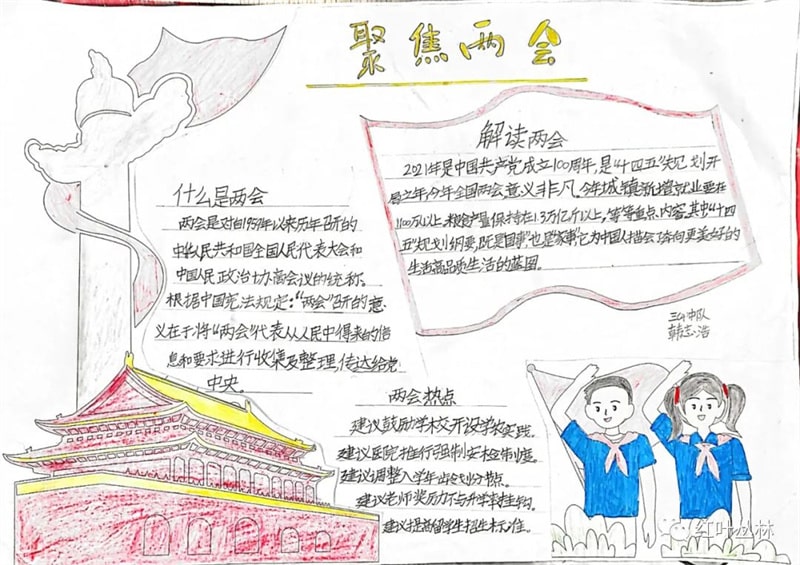 聚焦两会
什么是两会
两会是对自1959年以来历年召开的
中华人民共和国全国人民代表大会和
中国人民政治协商会议的统称。
根据中国宪法规定:“两会”召开的意
义在于将“两会”代表从人民中得来的信
息和要求进行收集及整理,传达给党
中央。
解读两会
2021年是中国共产党成立100周年,是“十四五”规划开
局之年,今年全国两会意义非凡。今年城镇新增就业要在
1100万以上,粮食产量保持在1.3万亿斤以上,等等重点内容。其中“十四
五”规划纲要,既是“国事”,也是“家事”,它为中国人描绘了奔向更美好的
生活高品质生活的蓝图。
三4中队
韩志浩
两会热点
建议鼓励学校开设学农实践。
建议医院推行强制安检制度。
建议调整入学年龄划分节点。
建议老师奖励不与升学率挂钩。
建议提高留学生招生标准。
红叶丛林